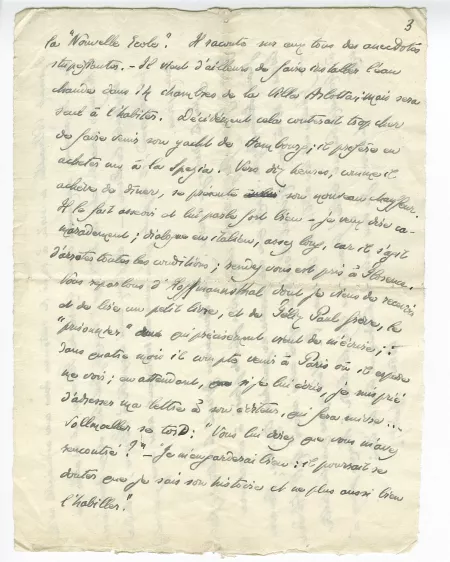 3
la "Nouvelle Ecole". Il raconte sur eux tous des anecdotes
stupéfiantes. - Il vient d'ailleurs de faire installer l'eau
chaude dans 14 chambres de la Villa mais sera
seul à l'habiter. Décidément cela coûterait trop cher
de faire venir son yacht de Hambourg; il préfère en
acheter un à la Spezia. Vers dix heures, comme il
achève de dîner, se présente son nouveau chauffeur.
Il le fait asseoir et lui parle fort bien - je veux dire ca-
maradement; dialogue en italien, assez long, car il s'agit
d'arrêter toutes les conditions; rendez-vous est pris à Florence.
Nous reparlons d'Hoffmannsthal dont je viens de recevoir
et de lire un petit livre, et de Félix Paul Grève, le
"prisonnier" qui précisément vient de m'écrire;
dans quatre mois il compte venir à Paris où il espère
me voir; en attendant, si je lui écris, je suis prié
d'adresser ma lettre à son éditeur, qui fera suivre...
Vollmoeller se tord: "Vous lui direz que vous m'avez
rencontré?" - "Je m'en garderai bien: il pourrait se
douter que je sais son histoire et ne plus aussi bien
l'habiller."